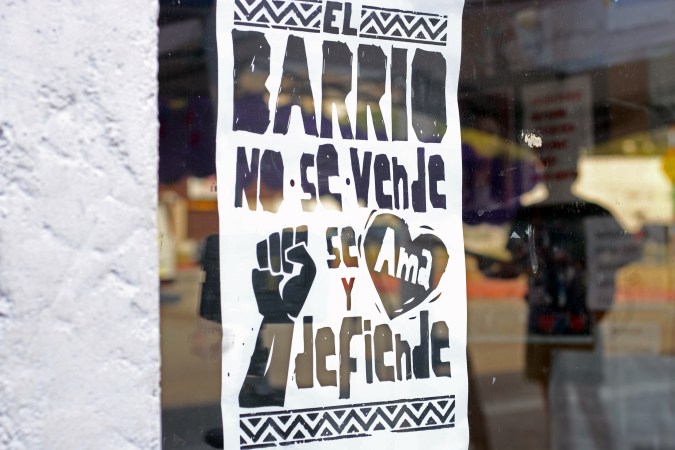 EL
BARRIO
No·se·vende
se Ama
Y
defiende